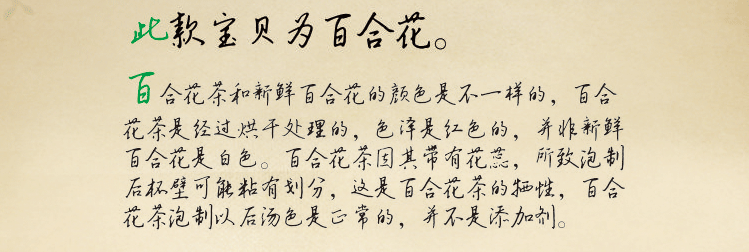 此款宝贝为百合花。
百合花茶和新鲜百合花的颜色是不一样的，百合
花茶是经过烘干处理的，色泽是红色的，并非新鲜
百合花是白色。百合花茶因其带有花蕊，所致泡制
后杯壁可能粘有划分，这是百合花茶的牺性，百合
花茶泡制以后汤色是正常的，并不是添加剂。